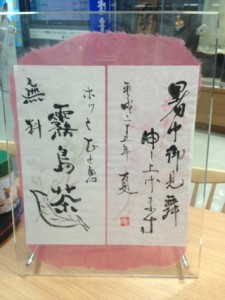 暑中御見舞
申し上げます
平成二十五年 夏
ホッとひと息
霧島茶
無料